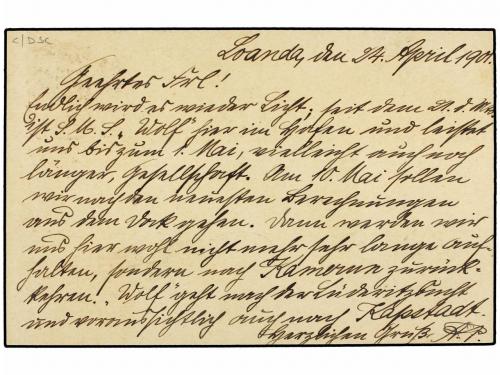 C/DSC
Loanda, den 24. April 1901.
Geehrtes Frl!
Endlich wird es wieder Licht; seit dem 21. d. Mts.
ist S. M. S. „Wolf" hier im Hafen und leistet
uns bis zum 1. Mai, vielleicht auch noch
länger, Gesellschaft. Am 10. Mai sollen
wir nach den neuesten Berechnungen
aus dem Dock gehen. Dann werden wir
uns hier wohl nicht mehr sehr lange auf-
halten, sondern nach Kamerun zurück-
kehren. „Wolf" geht nach der Lüderitzbucht
und voraussichtlich auch nach Kapstadt.
Herzlichen Gruß A. P.